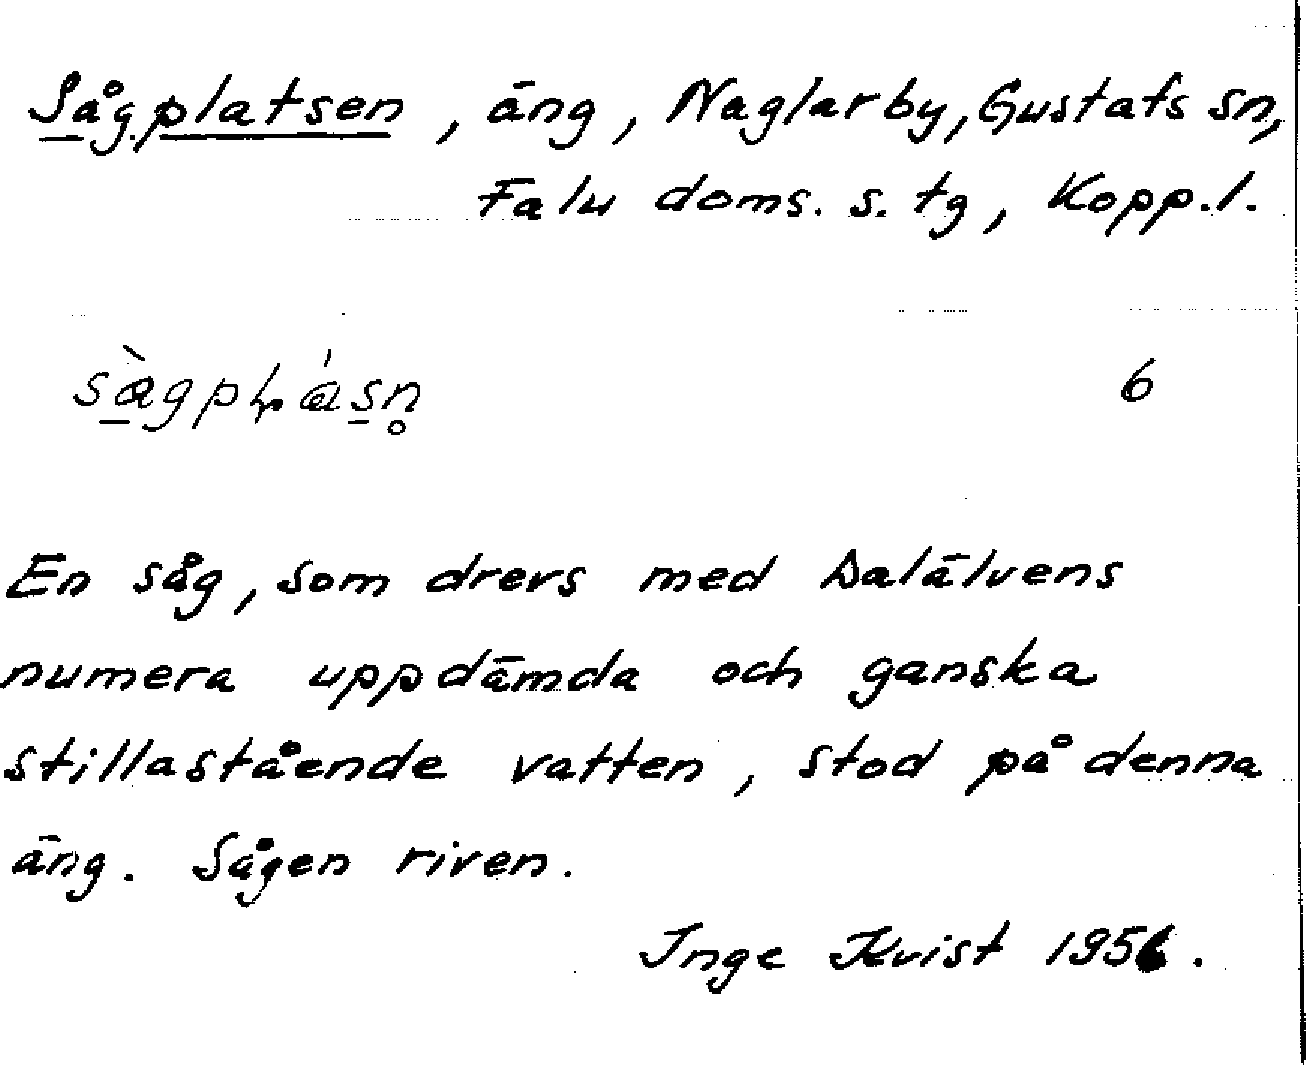 Sågplatsen, äng, Naglarby, Gustafs sn,
Falu doms. s. tg, Kopp.l.
6
En såg, som drevs med Dalälvens
numera uppdämda och ganska
stillastående vatten, stod på denna
äng. Sågen riven.
Inge Kvist 1956.